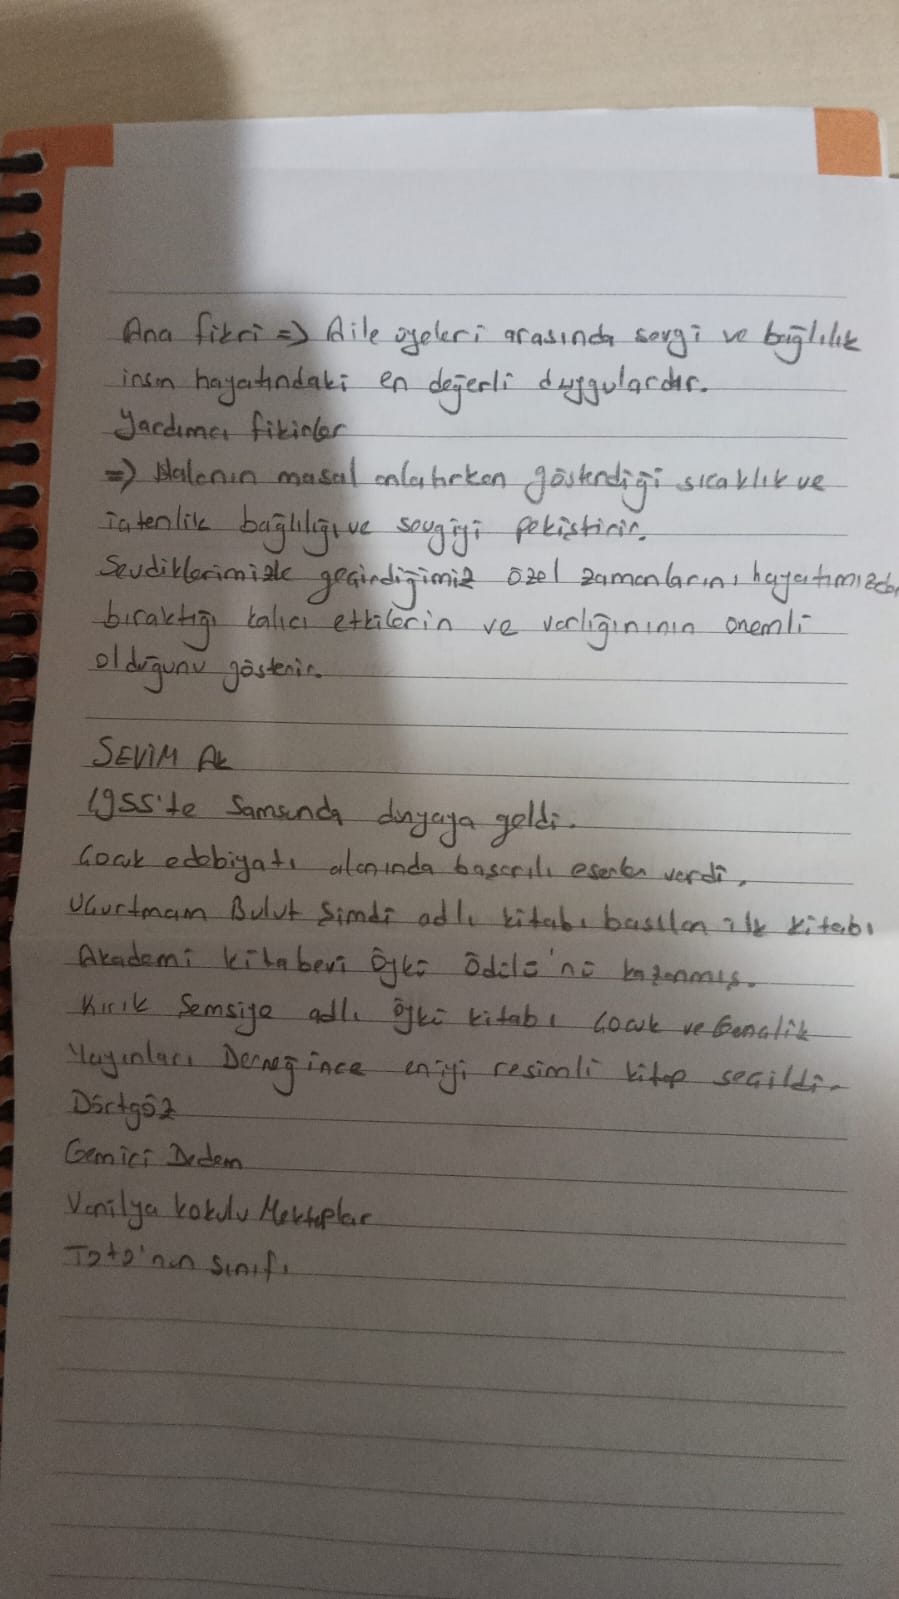 Ana fikri => Aile üyeleri arasında sevgi ve bağlılık
insan hayatındaki en değerli duygulardır.
Yardımcı fikirler
=> Halenin masal anlatırken gösterdiği sıcaklık ve
içtenlik bağlılığı ve sevgiyi pekiştirir.
Sevdiklerimizle geçirdiğimiz özel zamanların, hayatımızda
bıraktığı kalıcı etkilerin ve varlığınının önemli
olduğunu gösterir.
SEVİM AK
1955'te Samsunda dünyaya geldi.
Çocuk edebiyatı alanında başarılı eserler verdi.
Uçurtmam Bulut Şimdi adlı kitabı basılan ilk kitabı
Akademi kitabevi Öykü Ödülü'nü kazanmış.
Kırık Şemsiye adlı öykü kitabı Çocuk ve Gençlik
Yayınları Derneğince en iyi resimli kitap seçildi.
Dörtgöz
Gemici Dedem
Vanilya kokulu Mektuplar
Toto'nun sınıfı